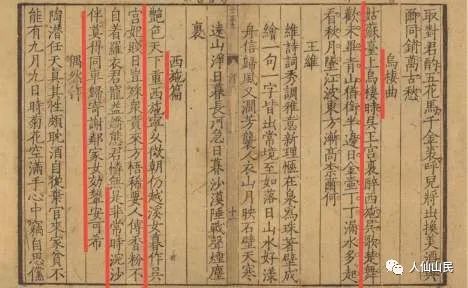 取對君酌五花馬千金裘呼兒將出換美酒與
爾同銷萬古愁
烏棲曲
姑蘇臺上烏棲時吳王宮裏醉西施吳歌楚舞
歡未畢青山猶銜半邊日金壺丁丁漏水多起
看秋月墜江波東方漸高奈樂何
王維
維詩詞秀調雅意新理愜在泉為珠著壁成
繪一句一字皆出常境至如落日山水好漾
舟信歸風又澗芳襲人衣山月映石壁天寒
遠山淨日暮長河急日暮沙漠陲戰聲煙塵
裏
西施篇
艷色天下重西施寧久微朝仍越溪女暮作吳
宮妃賤日豈殊衆貴來方悟稀要人傅香粉不
自著羅衣君寵益嬌態君憐無是非常時浣沙
伴莫得同車歸寄謝鄰家女效顰安可希
偶然作
陶潛任天真其性頗耽酒自從棄官來家貧不
能有九月九日時菊花空滿手心中竊自思儻
人仙山民